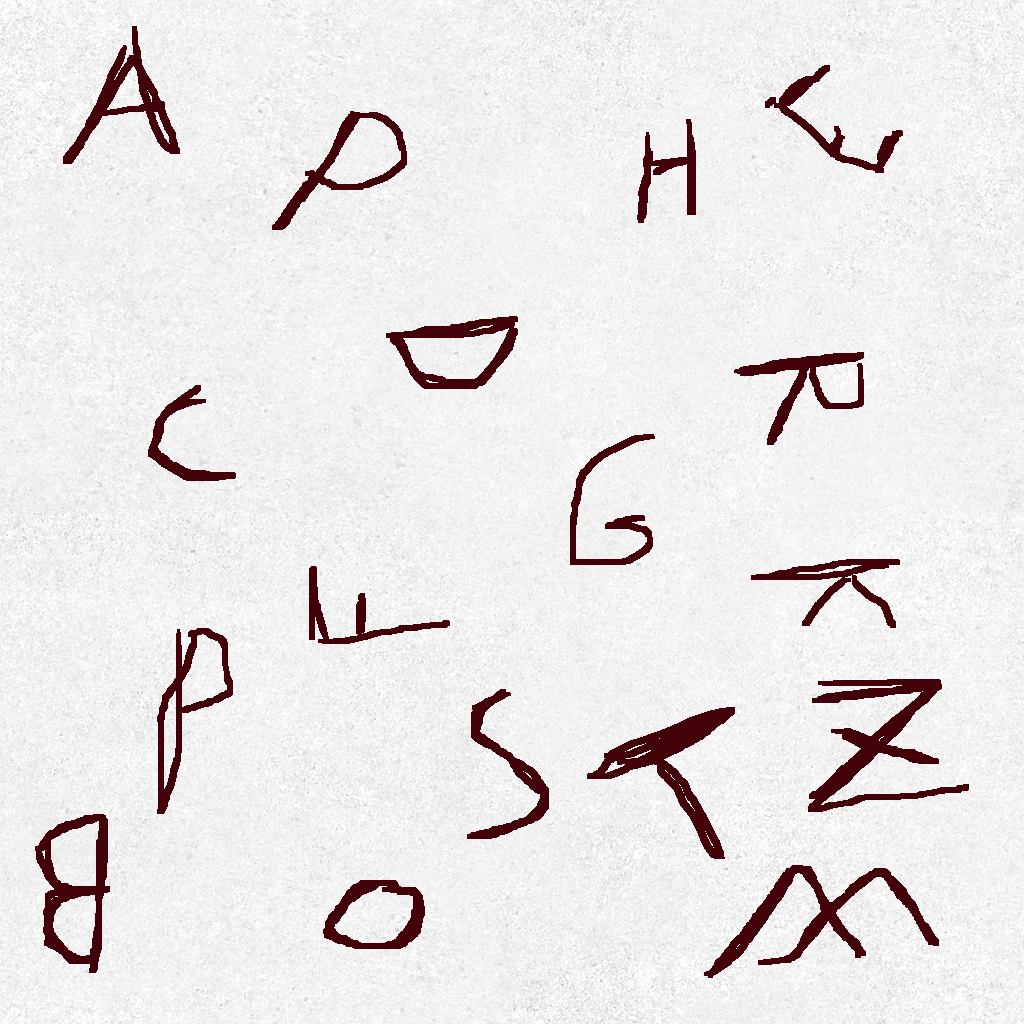 A P H E
D
C R
G
F K
P S T Z
B O M